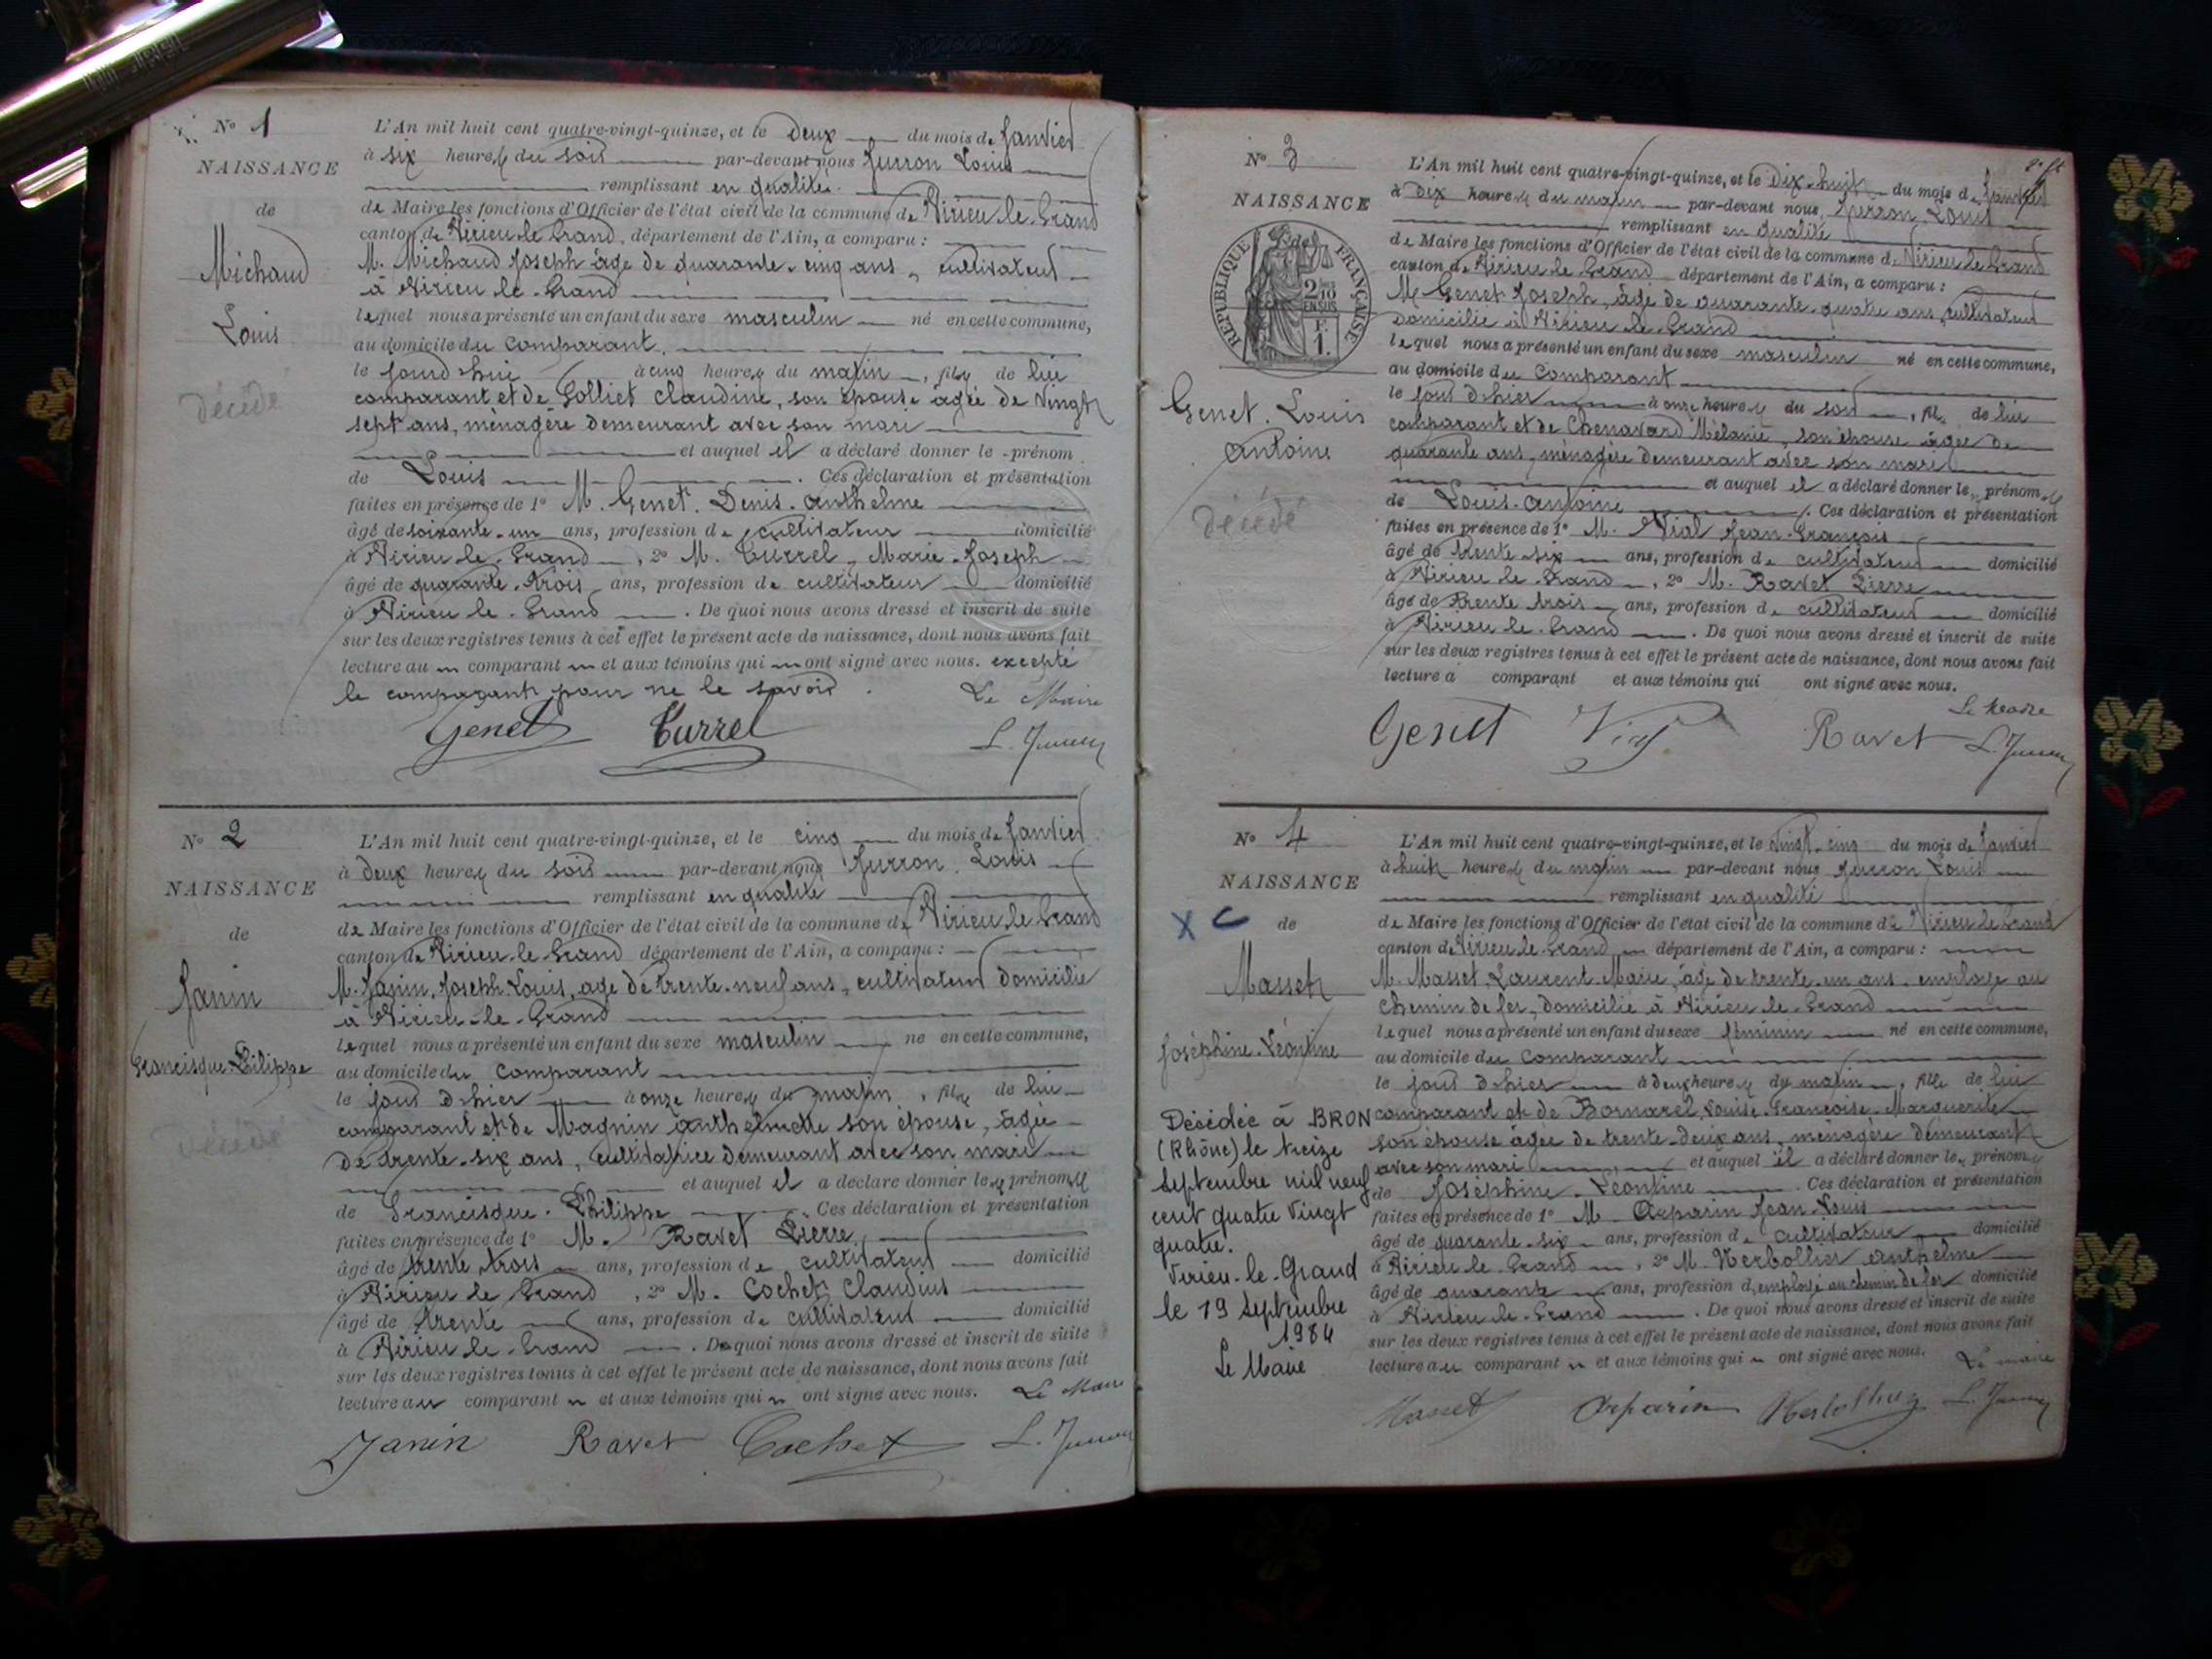 N° 1
NAISSANCE
de
Michaud
Louis
décédé
L'An mil huit cent quatre-vingt-quinze, et le Deux du mois de Janvier
à six heures du soir par-devant nous Jurron Louis
remplissant en qualité
de Maire les fonctions d'Officier de l'état civil de la commune de Virieu-le-Grand
canton de Virieu-le-Grand, département de l'Ain, a comparu :
M. Michaud Joseph âgé de quarante-cinq ans, cultivateur
à Virieu-le-Grand
lequel nous a présenté un enfant du sexe masculin né en cette commune,
au domicile du comparant,
le jourd'hui à cinq heures du matin, fils de lui
comparant et de Golliet Claudine, son épouse âgée de vingt
sept ans, ménagère demeurant avec son mari
et auquel il a déclaré donner le prénom
de Louis. Ces déclaration et présentation
faites en présence de 1° M. Genet Denis-Anthelme
âgé de soixante-un ans, profession de cultivateur domicilié
à Virieu-le-Grand, 2° M. Turrel, Marie-Joseph
âgé de quarante-trois ans, profession de cultivateur domicilié
à Virieu-le-Grand. De quoi nous avons dressé et inscrit de suite
sur les deux registres tenus à cet effet le présent acte de naissance, dont nous avons fait
lecture au comparant et aux témoins qui ont signé avec nous. excepté
le comparant pour ne le savoir.
Le Maire
Genet Turrel L. Jurron
N° 2
NAISSANCE
de
Janin
Francisque-Philippe
décédé
L'An mil huit cent quatre-vingt-quinze, et le cinq du mois de Janvier
à deux heures du soir par-devant nous Jurron Louis
remplissant en qualité
de Maire les fonctions d'Officier de l'état civil de la commune de Virieu-le-Grand
canton de Virieu-le-Grand département de l'Ain, a comparu :
M. Janin, Joseph-Louis, âgé de trente-neuf ans, cultivateur domicilié
à Virieu-le-Grand
lequel nous a présenté un enfant du sexe masculin né en cette commune,
au domicile du comparant
le jour d'hier à onze heures du matin, fils de lui
comparant et de Magnin Anthelmette son épouse, âgée
de trente-six ans, cultivatrice demeurant avec son mari
et auquel il a déclaré donner les prénoms
de Francisque-Philippe Ces déclaration et présentation
faites en présence de 1° M. Ravet Pierre
âgé de trente trois ans, profession de cultivateur domicilié
à Virieu-le-Grand, 2° M. Cochet Claudius
âgé de trente ans, profession de cultivateur domicilié
à Virieu-le-Grand. De quoi nous avons dressé et inscrit de suite
sur les deux registres tenus à cet effet le présent acte de naissance, dont nous avons fait
lecture au comparant et aux témoins qui ont signé avec nous. Le Maire
Janin Ravet Cochet L. Jurron
N° 3
NAISSANCE
de
RÉPUBLIQUE FRANÇAISE
2/10 EN SUS
1 F.
Genet. Louis
Antoine
décédé
L'An mil huit cent quatre-vingt-quinze, et le Dix-huit du mois de Janvier
à dix heures du matin par-devant nous Jurron Louis
remplissant en qualité
de Maire les fonctions d'Officier de l'état civil de la commune de Virieu-le-Grand
canton de Virieu-le-Grand département de l'Ain, a comparu :
M. Genet Joseph, âgé de quarante-quatre ans, cultivateur
domicilié à Virieu-le-Grand
lequel nous a présenté un enfant du sexe masculin né en cette commune,
au domicile du comparant
le jour d'hier à onze heures du soir, fils de lui
comparant et de Chenavard Mélanie, son épouse âgée de
quarante ans, ménagère demeurant avec son mari
et auquel il a déclaré donner les prénoms
de Louis-Antoine. Ces déclaration et présentation
faites en présence de 1° M. Vial Jean-François
âgé de trente-six ans, profession de cultivateur domicilié
à Virieu-le-Grand, 2° M. Ravet Pierre
âgé de trente trois ans, profession de cultivateur domicilié
à Virieu-le-Grand. De quoi nous avons dressé et inscrit de suite
sur les deux registres tenus à cet effet le présent acte de naissance, dont nous avons fait
lecture a comparant et aux témoins qui ont signé avec nous.
Le Maire
Genet Vial Ravet L. Jurron
N° 4
NAISSANCE
X C de
Masset
Joséphine-Léontine
Décédée à BRON
(Rhône) le treize
septembre mil neuf
cent quatre vingt
quatre.
Virieu-le-Grand
le 19 Septembre
1984
Le Maire
L'An mil huit cent quatre-vingt-quinze, et le vingt-cinq du mois de Janvier
à huit heures du matin par-devant nous Jurron Louis
remplissant en qualité
de Maire les fonctions d'Officier de l'état civil de la commune de Virieu-le-Grand
canton de Virieu-le-Grand département de l'Ain, a comparu :
M. Masset, Laurent-Marie, âgé de trente-un ans, employé au
chemin de fer, domicilié à Virieu-le-Grand
lequel nous a présenté un enfant du sexe féminin né en cette commune,
au domicile du comparant
le jour d'hier à deux heures du matin, fille de lui
comparant et de Bornarel, Louise-Françoise-Marguerite
son épouse âgée de trente-deux ans, ménagère demeurant
avec son mari et auquel il a déclaré donner les prénoms
de Joséphine-Léontine. Ces déclaration et présentation
faites en présence de 1° M. Arparin Jean-Louis
âgé de quarante-six ans, profession de cultivateur domicilié
à Virieu-le-Grand, 2° M. Anthelme
âgé de quarante ans, profession d'employé au chemin de fer domicilié
à Virieu-le-Grand. De quoi nous avons dressé et inscrit de suite
sur les deux registres tenus à cet effet le présent acte de naissance, dont nous avons fait
lecture au comparant et aux témoins qui ont signé avec nous. Le maire
Masset Arparin L. Jurron